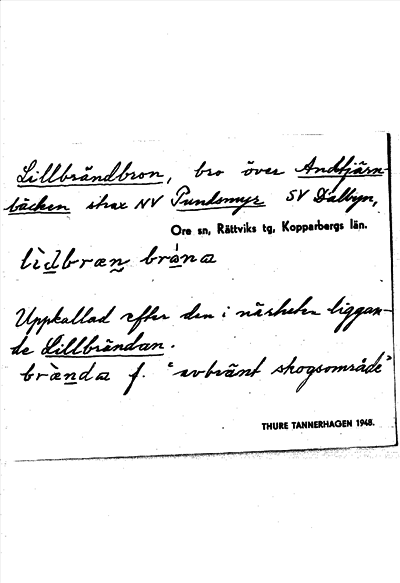 Lillbrändbron, bro över Andtjärn-
bäcken strax NV Pundsmyr SV Dalbyn,
Ore sn, Rättviks tg, Kopparbergs län.
Uppkallad efter den i närheten liggan-
de Lillbrändan.
f. "avbränt skogsområde"
THURE TANNERHAGEN 1948.